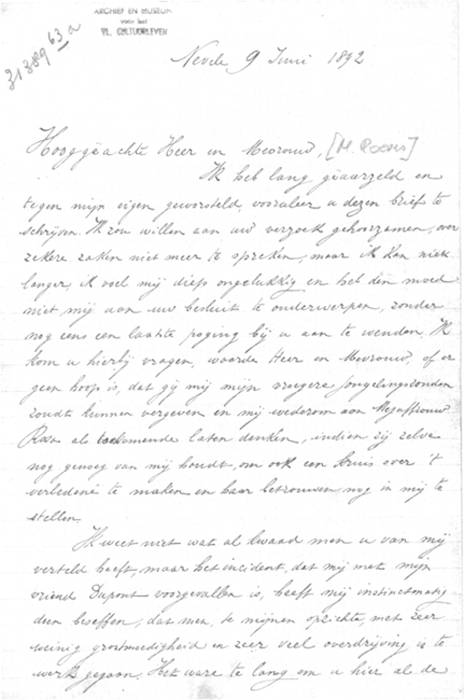 ARCHIEF EN MUSEUM
voor het
VL. CULTUURLEVEN
63 a
Nevele 9 Juni 1892
Hooggeachte Heer en Mevrouw,
Ik heb lang geaarzeld en
tegen mijn eigen geworsteld, vooraleer u dezen brief te
schrijven. Ik zou willen aan uw verzoek gehoorzamen, over
zekere zaken niet meer te spreken, maar ik kan niet
langer, ik voel mij diep ongelukkig en heb den moed
niet mij aan uw besluit te onderwerpen, zonder
nog eens een laatste poging bij u aan te wenden. Ik
kom u hierbij vragen, waarde Heer en Mevrouw, of er
geen hoop is, dat gij mij mijn vroegere jongelingszonden
zoudt kunnen vergeven en mij wederom aan Mejuffrouw
als toekomende laten denken, indien zij zelve
nog genoeg van mij houdt, om ook een kruis over 't
verledene te maken en haar betrouwen nog in mij te
stellen.
Ik weet niet wat al kwaad men u van mij
verteld heeft, maar het incident, dat mij met mijn
vriend Dupont voorgevallen is, heeft mij instinctmatig
doen beseffen, dat men, te mijnen opzichte, met zeer
weinig grootmoedigheid en zeer veel overdrijving is te
werk gegaan. Het ware te lang om u hier al de